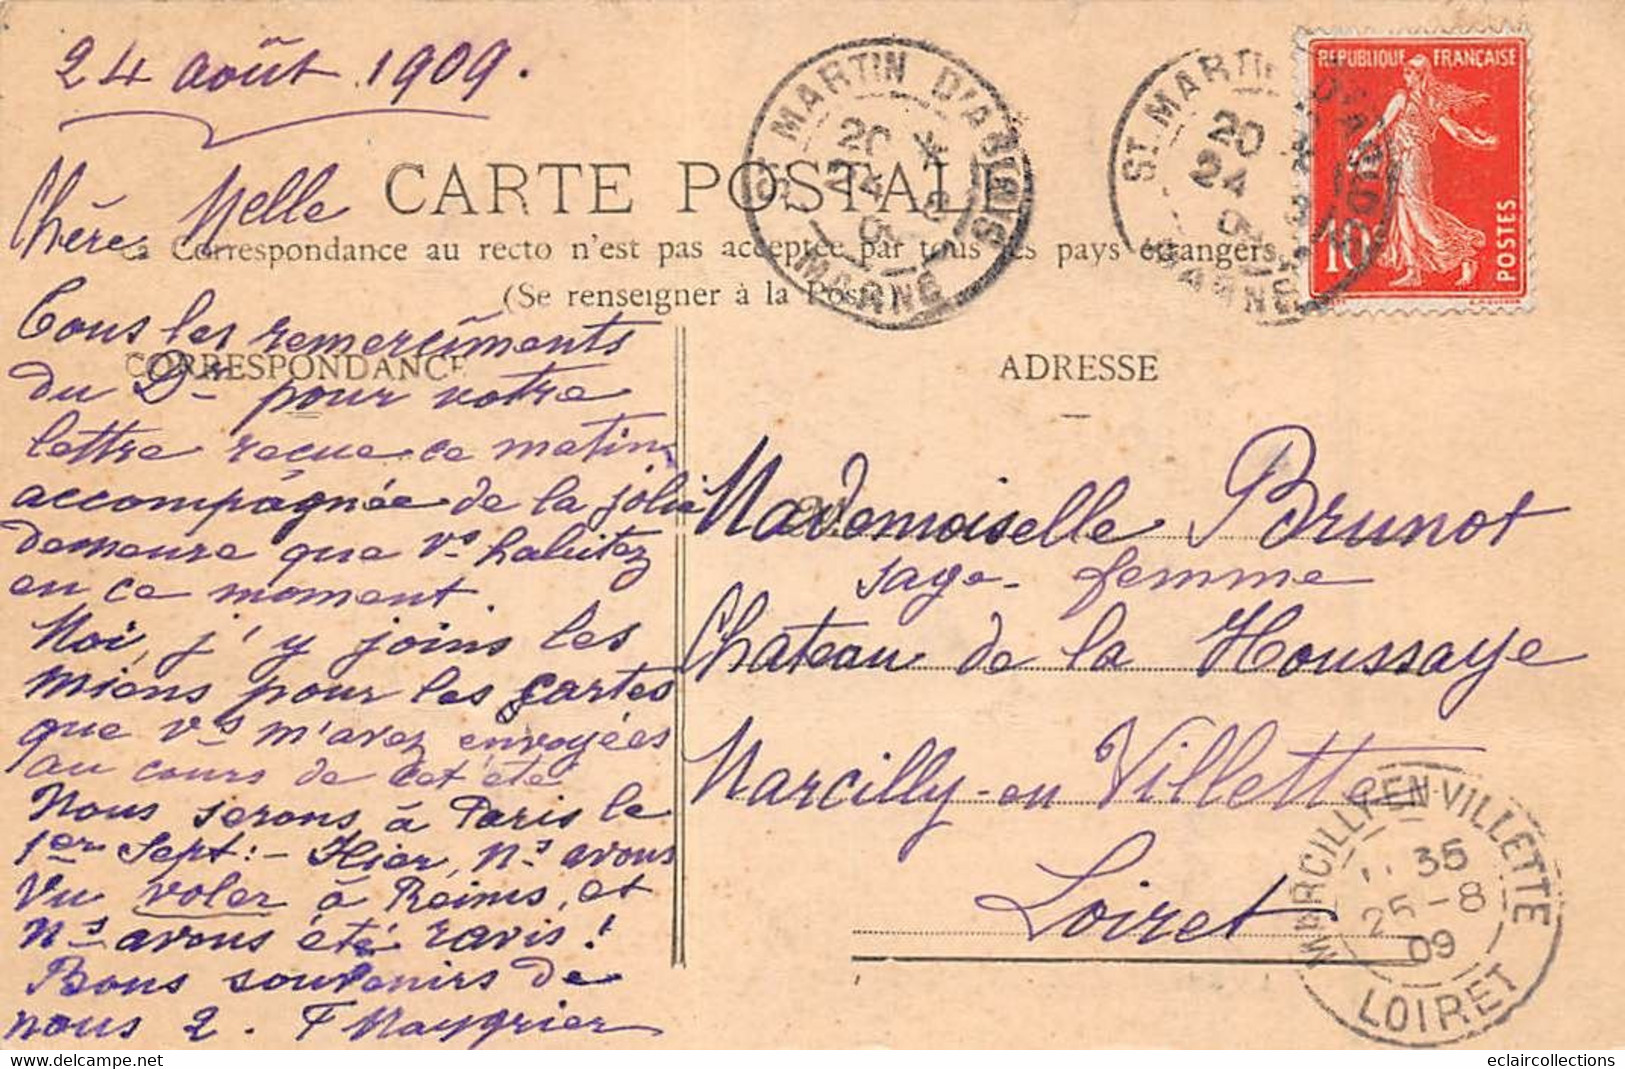 24 août 1909.
CARTE POSTALE
La Correspondance au recto n'est pas acceptée par tous les pays étrangers
(Se renseigner à la Poste)
CORRESPONDANCE
Chère Melle
Tous les remerciments
du Dr pour votre
lettre reçue ce matin,
accompagnée de la jolie
demeure que vs habitez
en ce moment.
Moi, j'y joins les
miens pour les cartes
que vs m'avez envoyées
au cours de cet été
Nous serons à Paris le
1er Sept: - Hier, ns avons
vu voler à Reims, et
ns avons été ravis!
Bons souvenirs de
nous 2. F Maygrier
ADRESSE
Mademoiselle Brunot
sage-femme
Château de la Houssaye
Marcilly-en Villette
Loiret
ST MARTIN D'ABLOIS
20 *
24 8
09
MARNE
ST. MARTIN D'ABLOIS
20 *
24 8
09
MARNE
REPUBLIQUE FRANÇAISE
10
POSTES
MARCILLY-EN-VILLETTE
11 35
25 - 8
09
LOIRET
eclaircollections